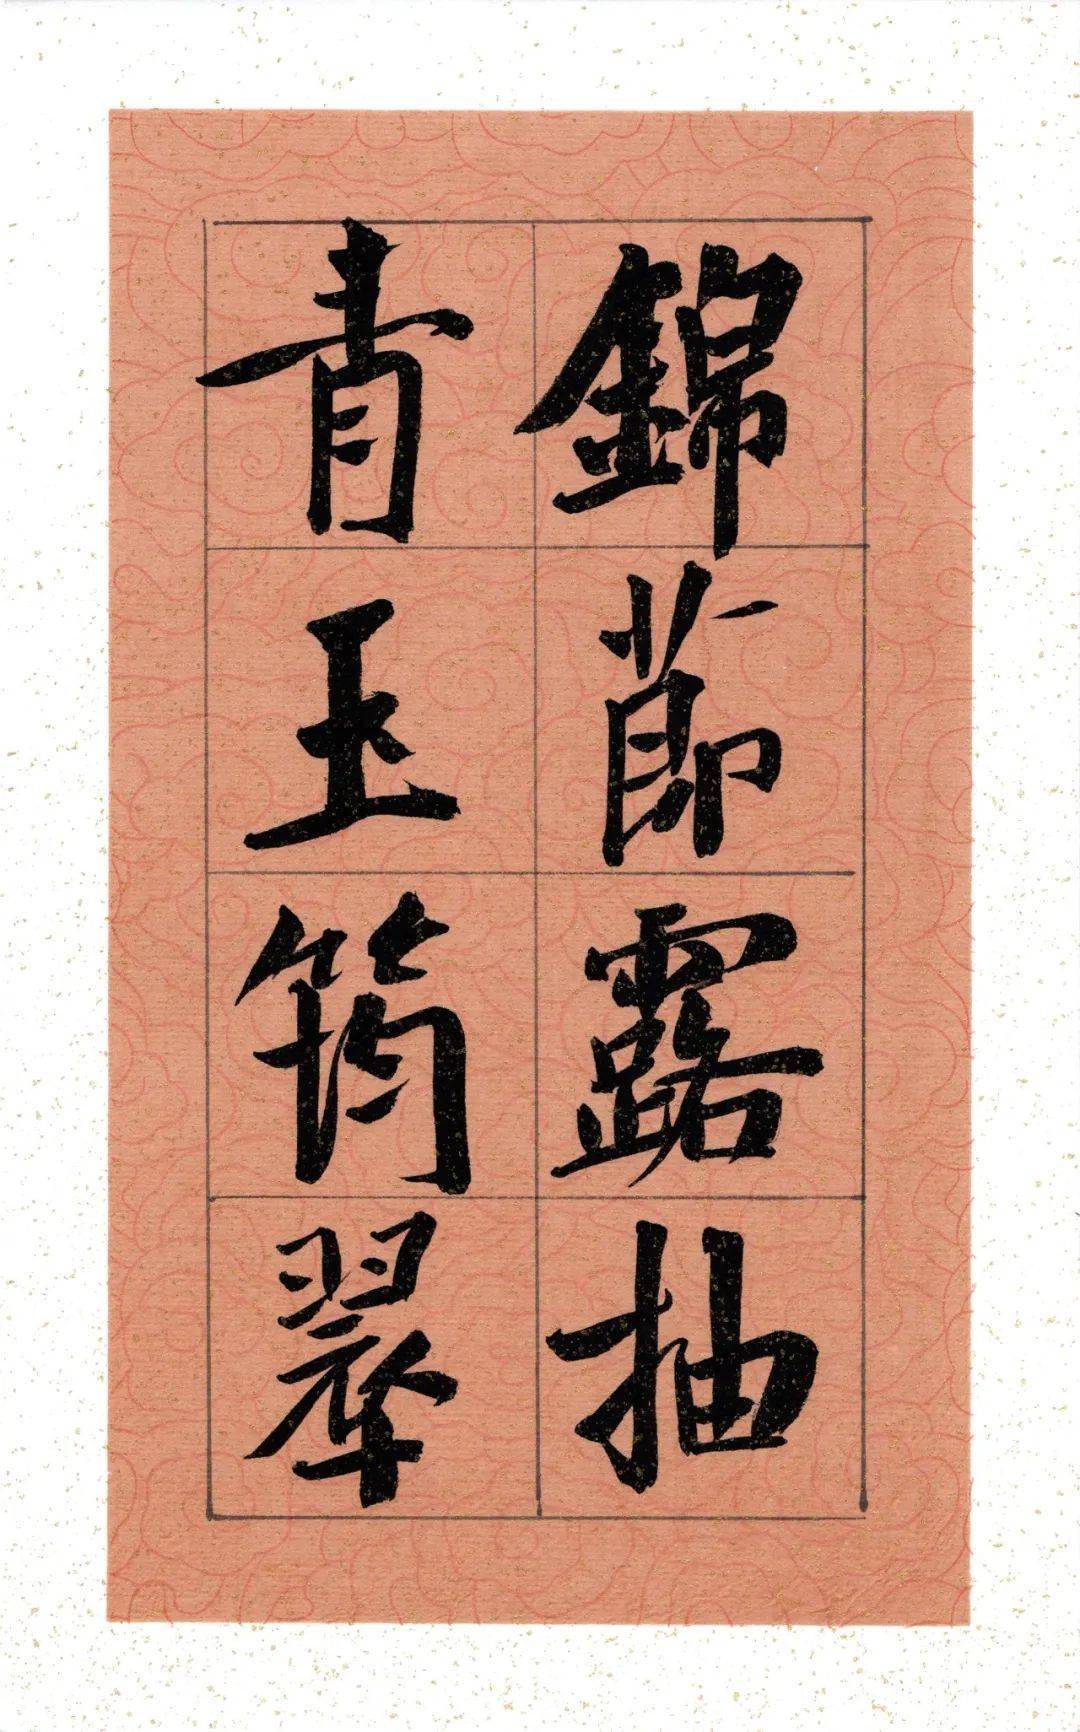 錦節露抽
青玉筠翠